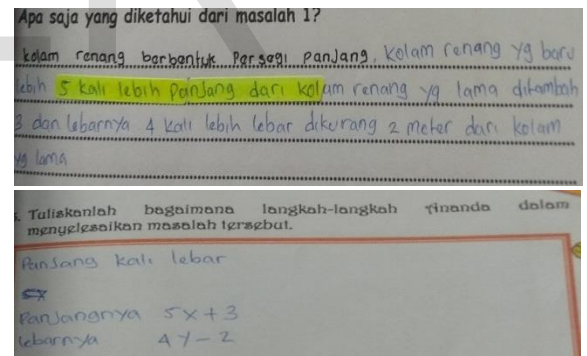 Apa saja yang diketahui dari masalah 1?
kolam renang berbentuk persegi panjang, kolam renang yg baru
lebih 5 kali lebih panjang dari kolam renang yg lama ditambah
3 dan lebarnya 4 kali lebih lebar dikurang 2 meter dari kolam
yg lama
Tuliskanlah bagaimana langkah-langkah Ananda dalam
menyelesaikan masalah tersebut.
Panjang kali lebar
5x
Panjangnya 5x+3
lebarnya 4y-2